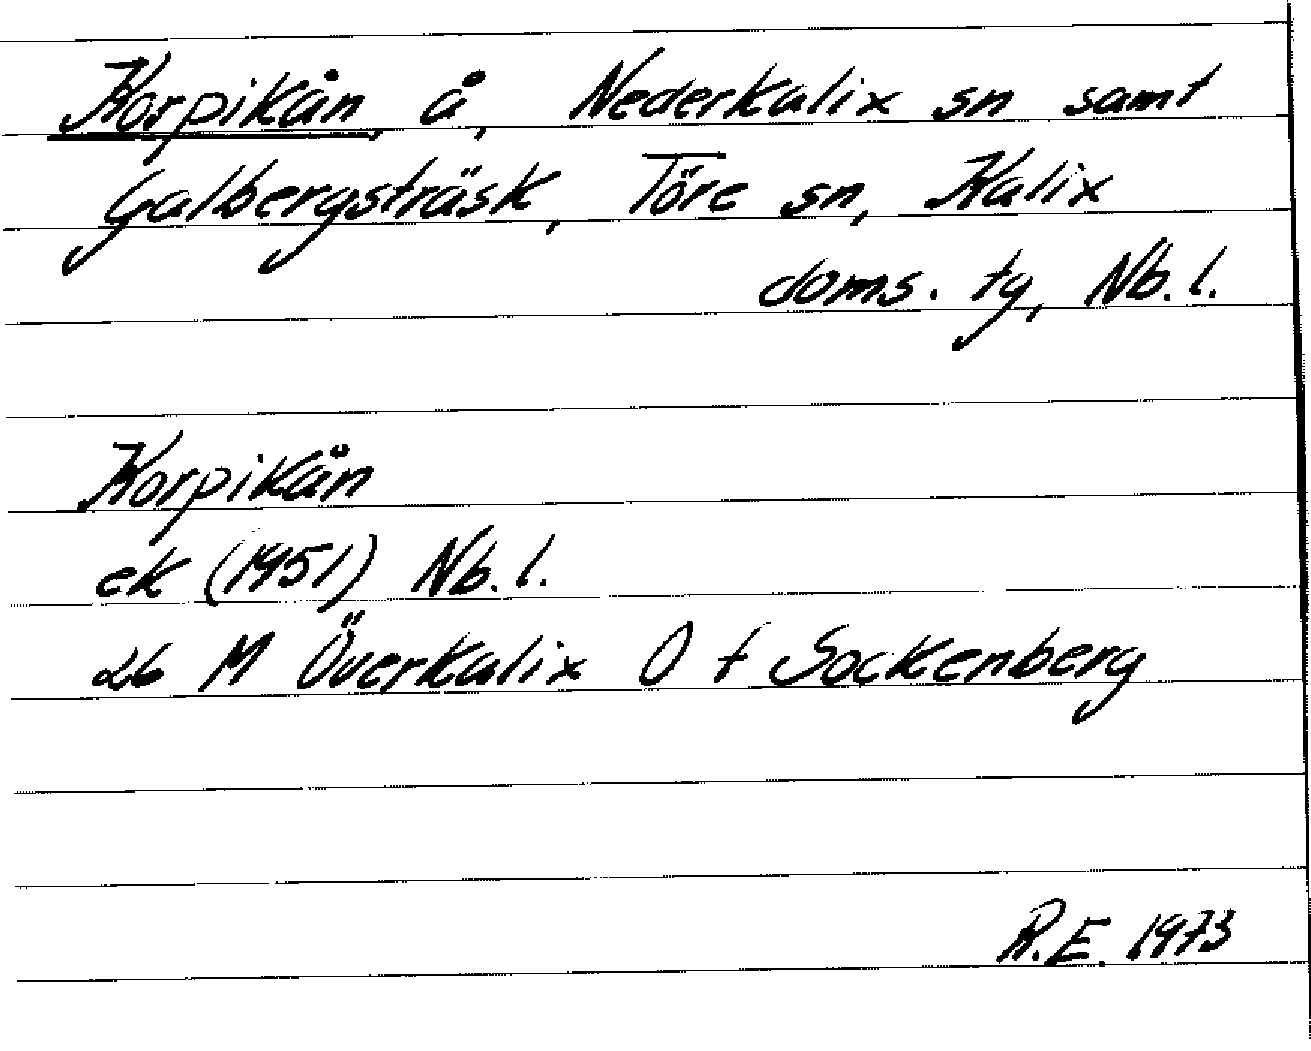 Korpikån, å, Nederkalix sn samt
Galbergsträsk, Töre sn, Kalix
doms. tg, Nb. l.
Korpikån
ek (1951) Nb. l.
26 M Överkalix O t Sockenberg
R.E. 1973